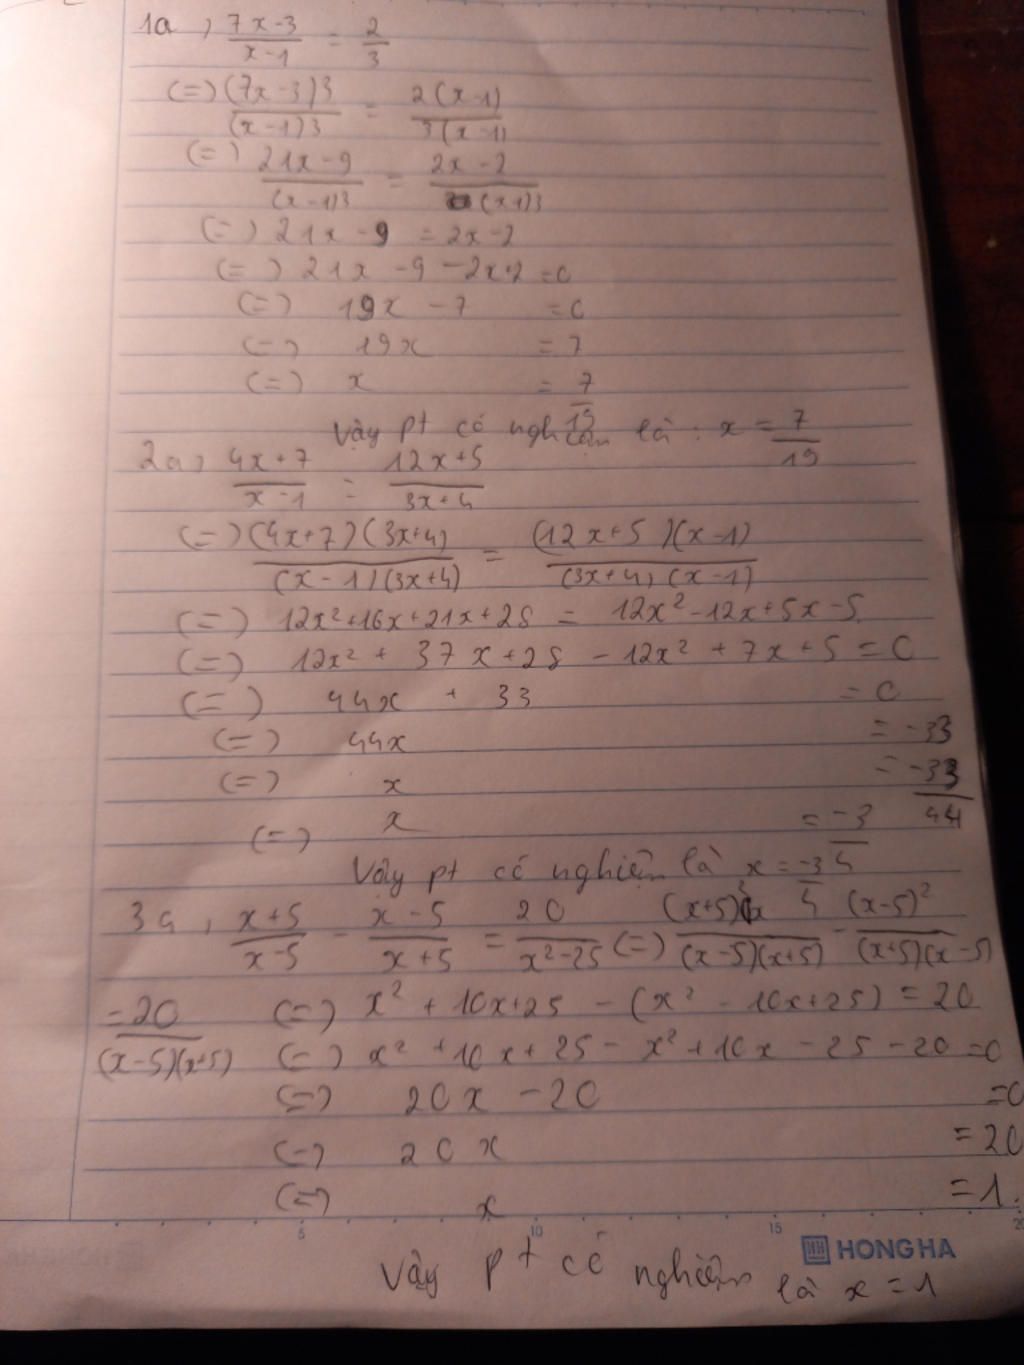 1a, (7x-3)/(x-1) = 2/3
(=) (7x-3)3/((x-1)3) = 2(x-1)/(3(x-1))
(=) (21x-9)/((x-1)3) = (2x-2)/((x-1)3)
(=) 21x-9 = 2x-2
(=) 21x-9-2x+2 = 0
(=) 19x-7 = 0
(=) 19x = 7
(=) x = 7/19
Vậy pt có nghiệm là: x = 7/19
2a, (4x+7)/(x-1) = (12x+5)/(3x+4)
(=) (4x+7)(3x+4)/((x-1)(3x+4)) = (12x+5)(x-1)/((3x+4)(x-1))
(=) 12x²+16x+21x+28 = 12x²-12x+5x-5
(=) 12x²+37x+28-12x²+7x+5 = 0
(=) 44x + 33 = 0
(=) 44x = -33
(=) x = -33/44
(=) x = -3/4
Vậy pt có nghiệm là x = -3/4
3a, (x+5)/(x-5) - (x-5)/(x+5) = 20/(x²-25) (=) (x+5)²/((x-5)(x+5)) - (x-5)²/((x+5)(x-5))
= 20/((x-5)(x+5)) (=) x²+10x+25-(x²-10x+25) = 20
(=) x²+10x+25-x²+10x-25-20 = 0
(=) 20x-20 = 0
(=) 20x = 20
(=) x = 1.
5 10 15 20
HONG HA
Vậy pt có nghiệm là x = 1